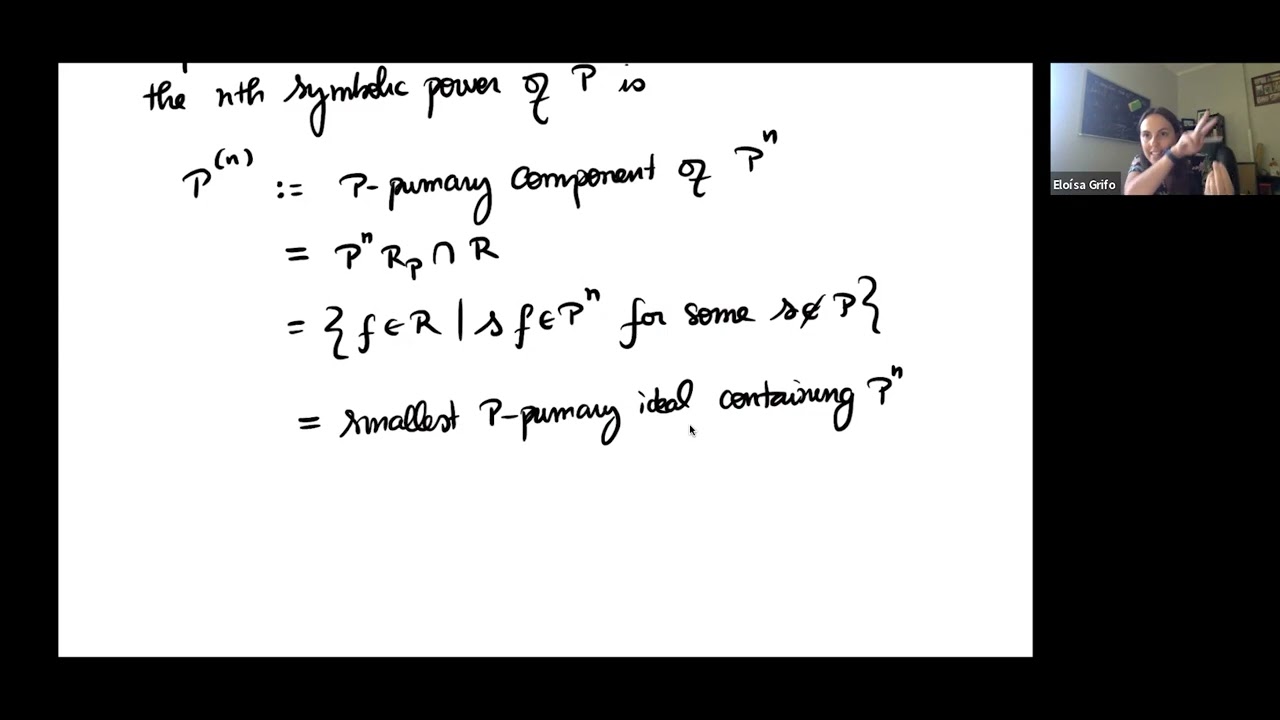 the nth symbolic power of P is
P^(n) := P-primary component of P^n
= P^n R_P ∩ R
= {f ∈ R | s f ∈ P^n for some s ∉ P}
= smallest P-primary ideal containing P^n
Eloísa Grifo